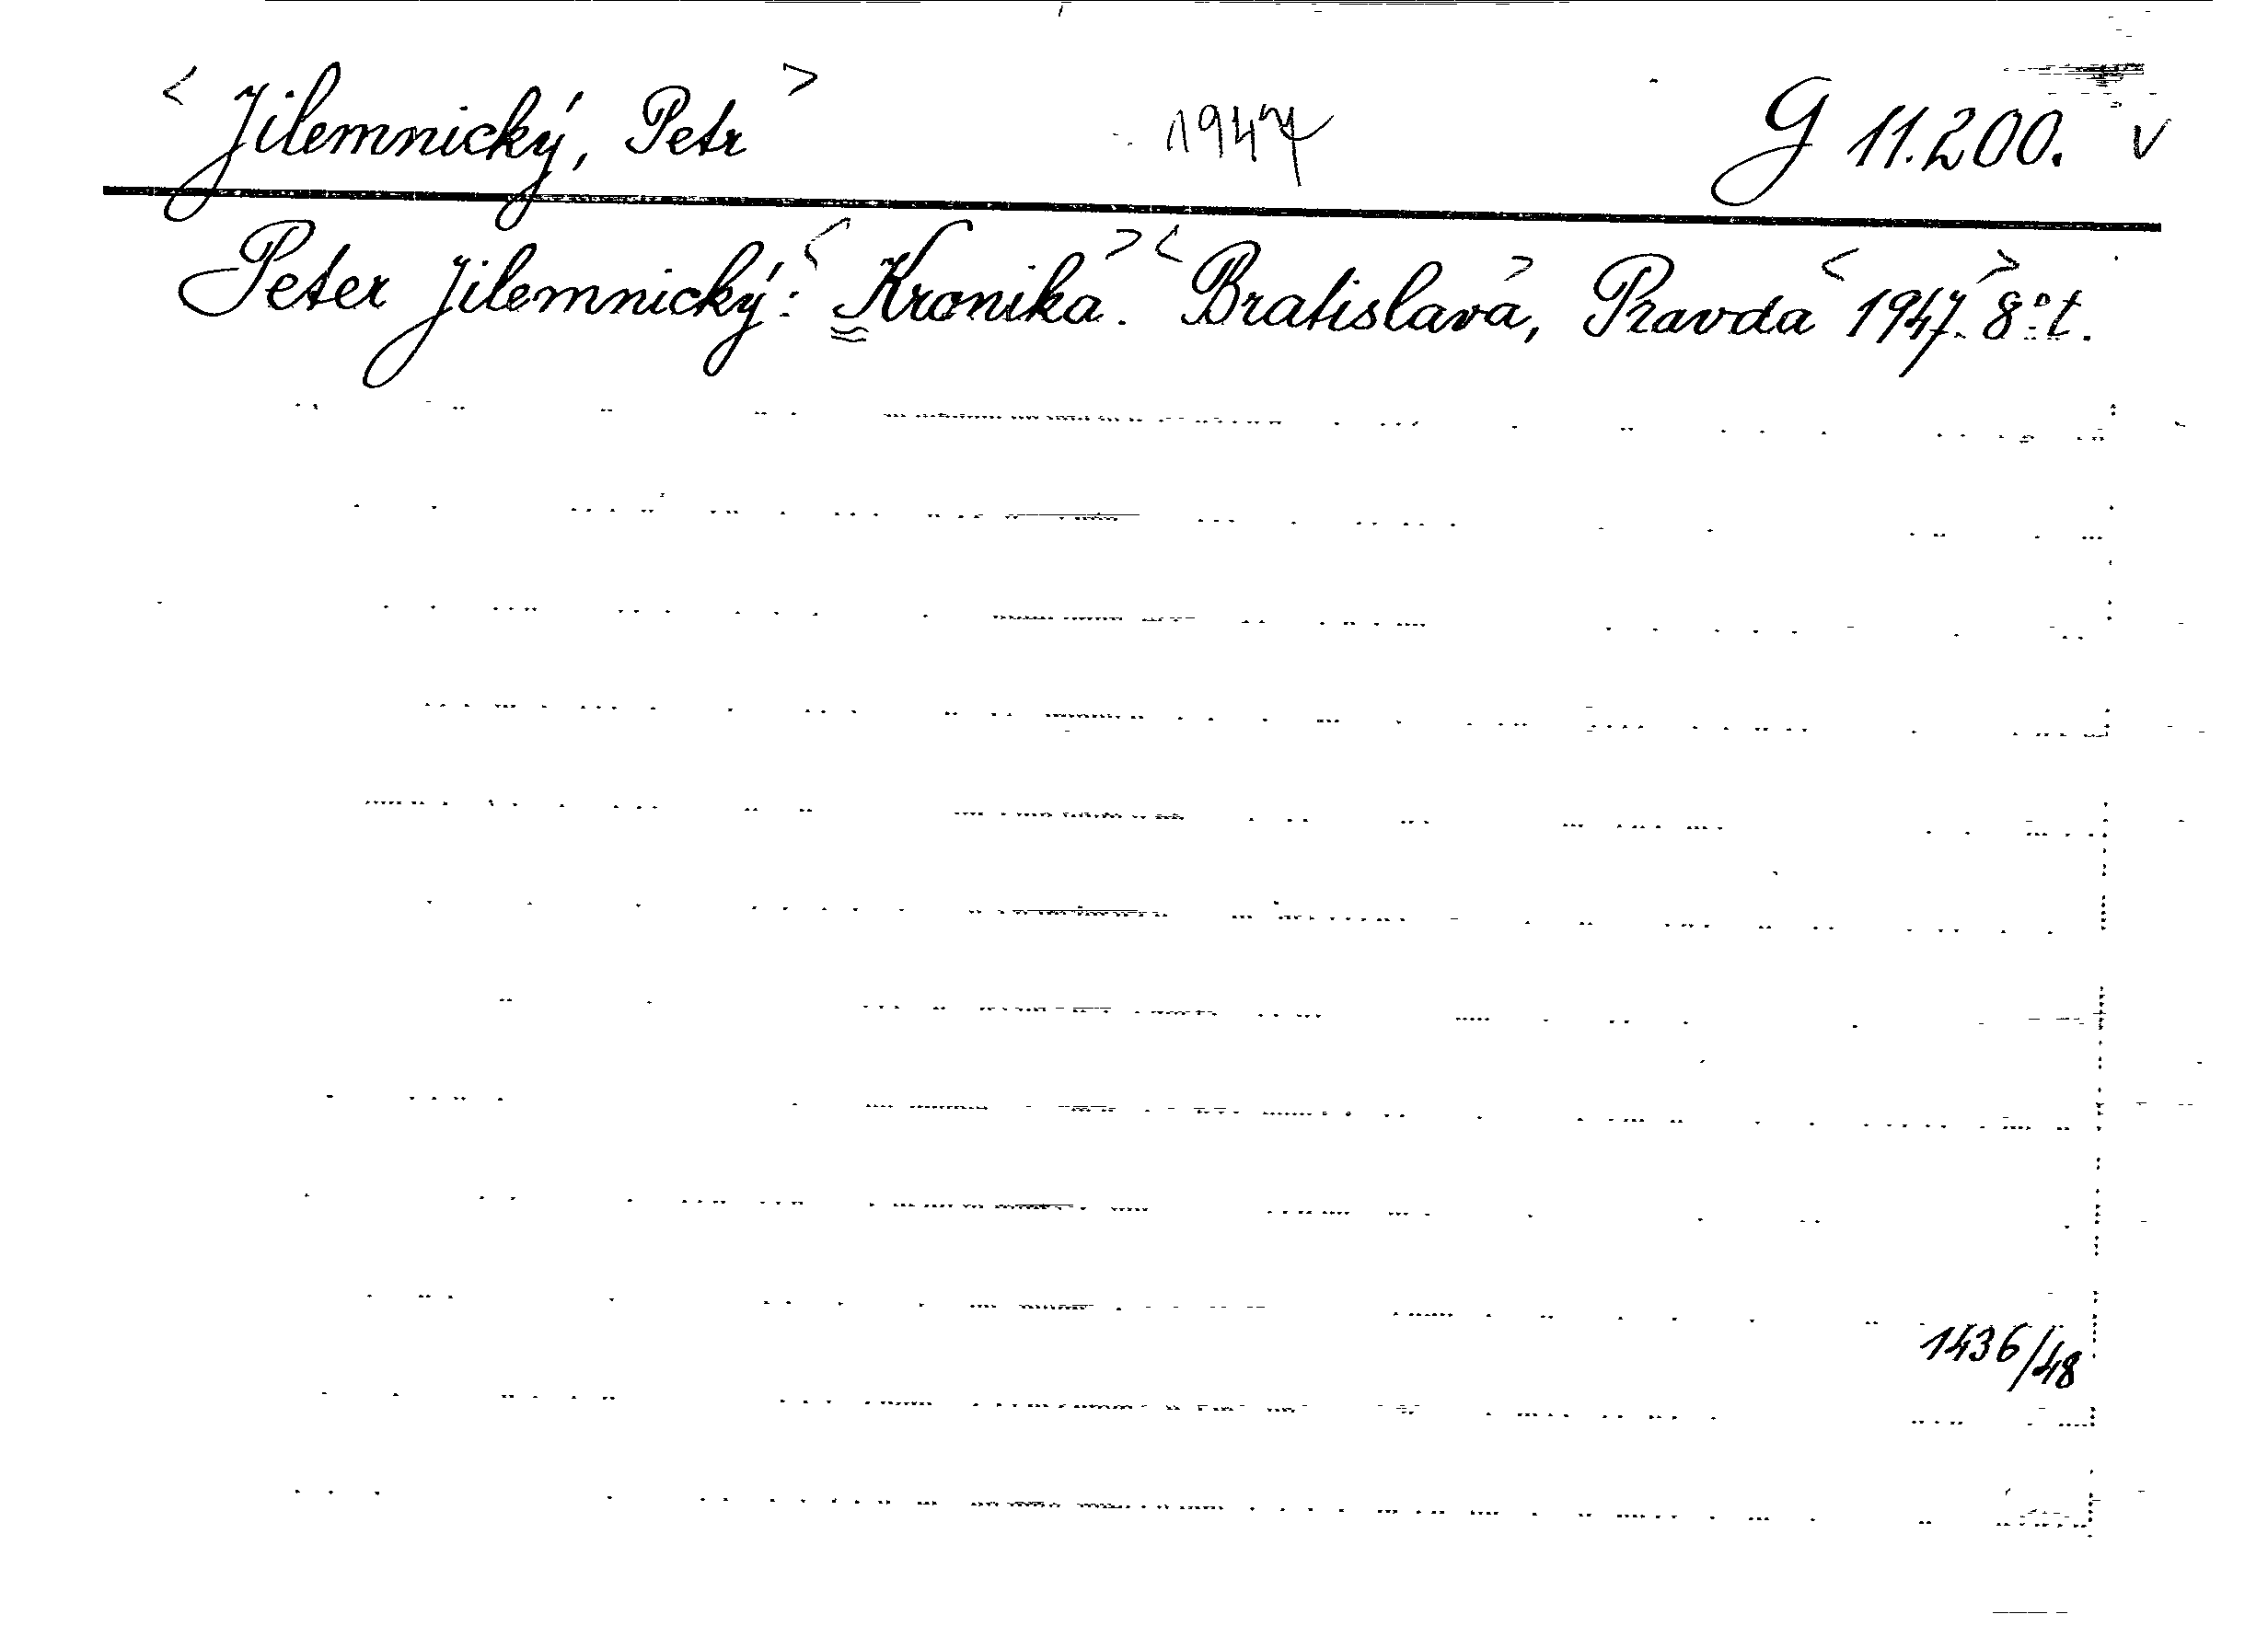 < Jilemnický, Petr > 1947 G 11.200. v
Peter Jilemnický: < Kronika. > < Bratislava, > Pravda < 1947. > 8° t.
1436/48